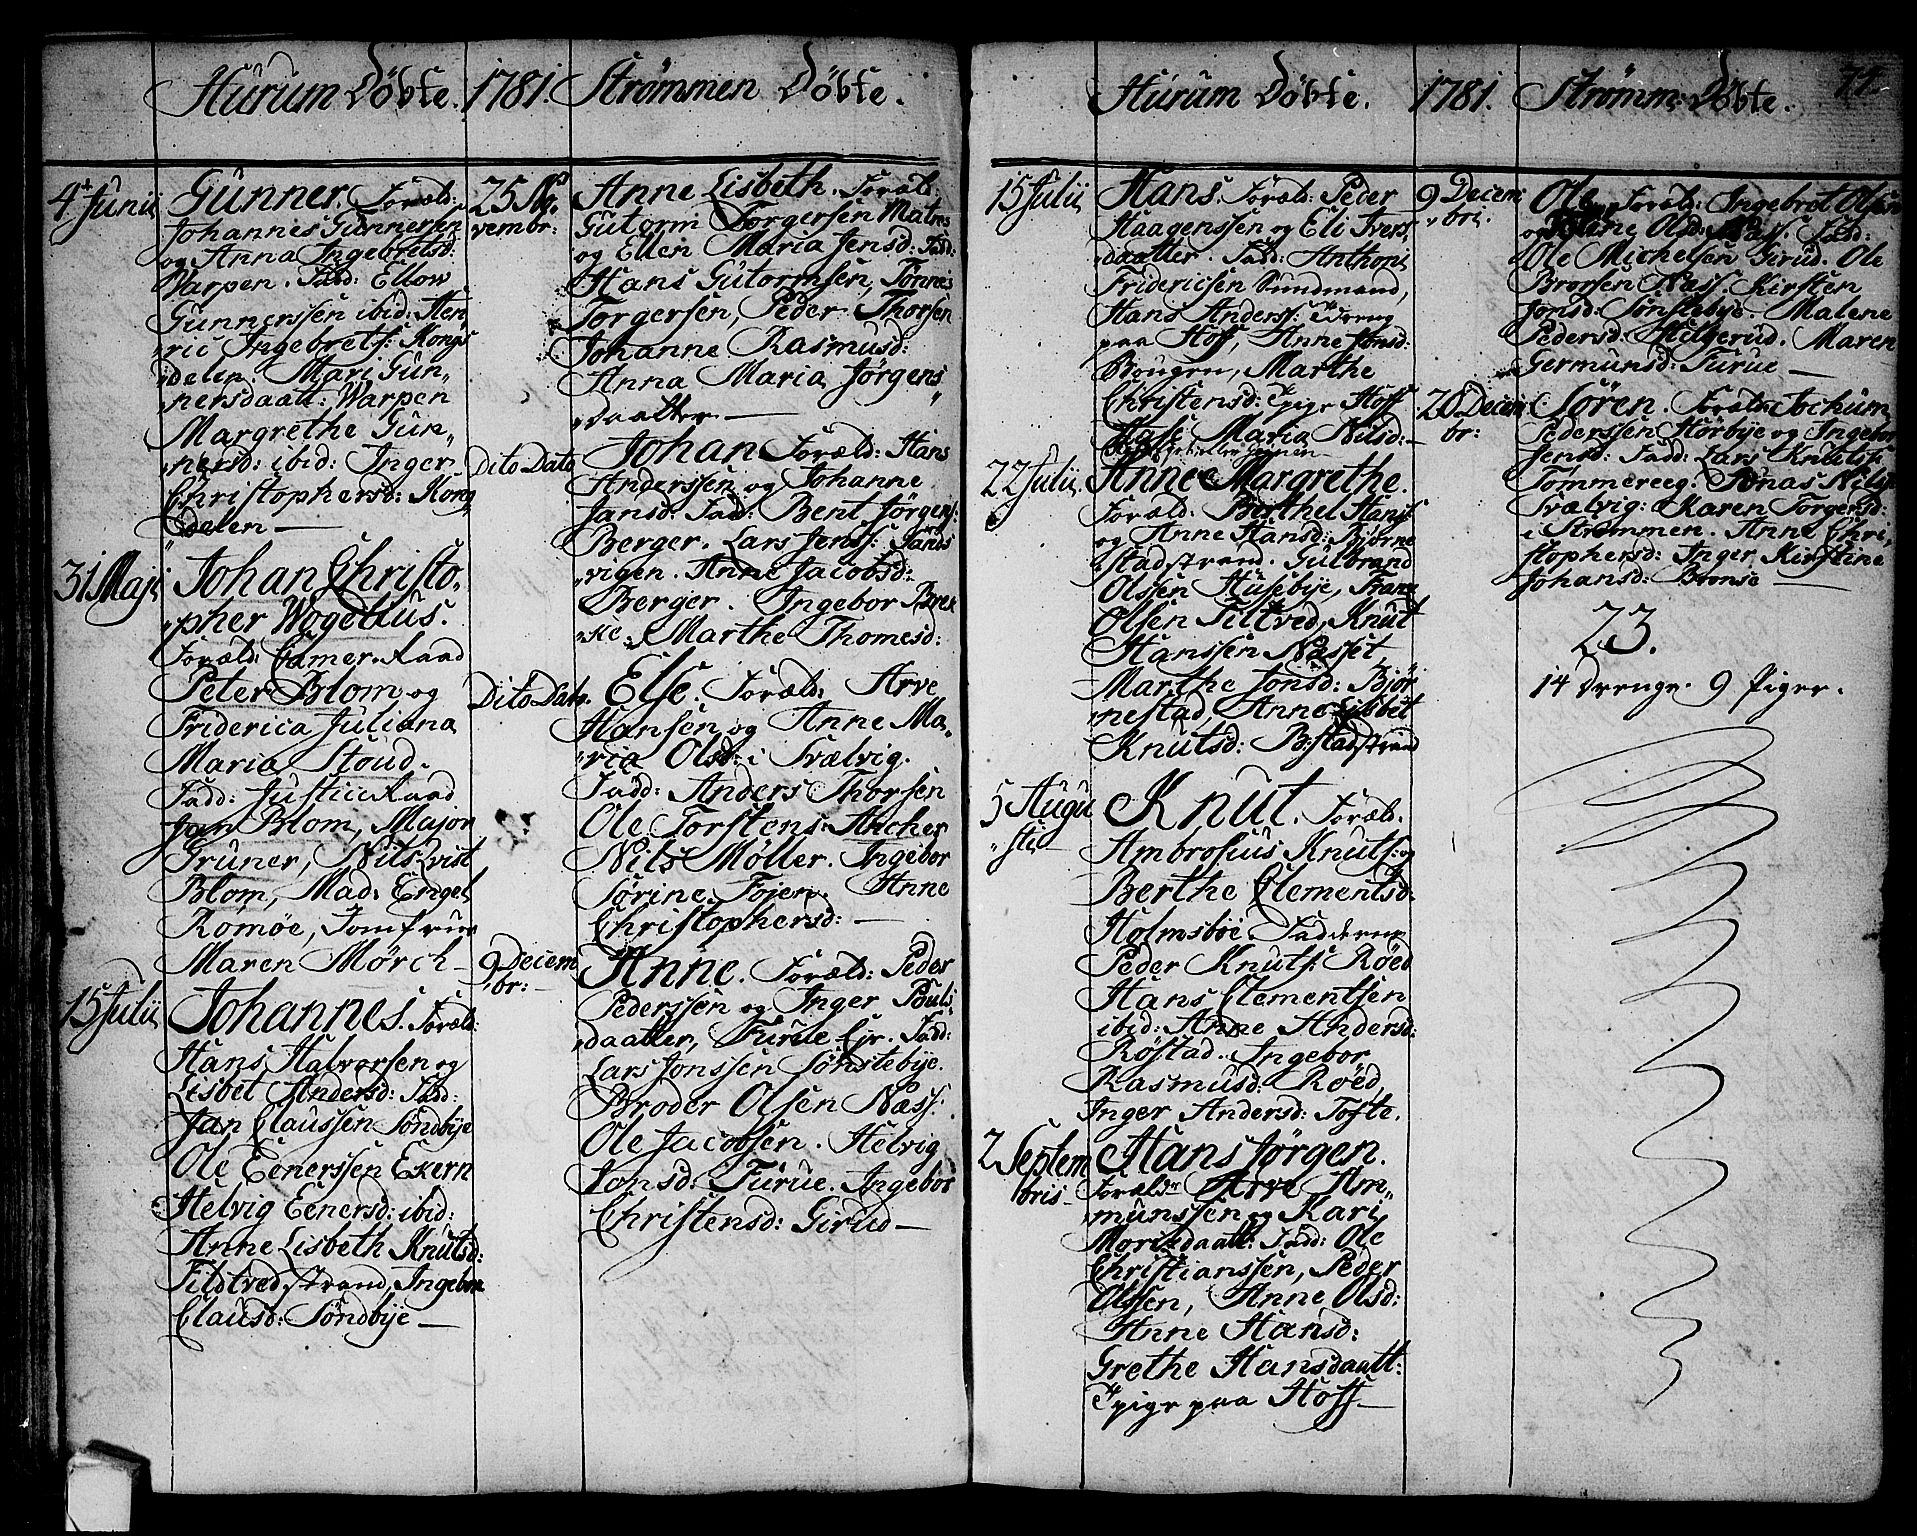 Hurum Døbte. 1781. Strømmen Døbte.
4 Junii
Gunner. Foræld:
Johannes Gunnersen
og Anna Ingebretsd:
Warpen. Fadd: Ellow
Gunnerssen ibid: Hen
ric Ingebretss: Kongs
delen. Mari Gun„
nersdaatt: Warpen
Margrethe Gun„
nersd: ibid: Inger
Christophersd: Kong
delen —
31 Maji
Johan Christo„
pher Wogelius.
Foræld: Camer-Raad
Peter Blom og
Friderica Juliana
Maria Stoud.
Fadd: Justice Raad
Jan Blom, Major
Gruner, Nils Qvist
Blom, Mad: Engel
Romøe, Jomfrue
Maren Mørch —
15 Julii
Johannes. Foræld:
Hans Halvorsen og
Lisbet Andersd: Fadd:
Jan Claussen Søndbye
Ole Eenerssen Ekern
Helvig Eenersd: ibid:
Anne Lisbeth Knutsd:
Tildtvedstrand, Ingebor
Clausd: Søndbye —
25 No„
vembr:
Anne Lisbeth. Foræld:
Gutorm Torgersen
og Ellen Maria Jensd: Fadd:
Hans Gutormsen, Tønnes
Torgersen, Peder Thorsen
Johanne Rasmusd:
Anna Maria Jørgens„
daatter —
Dito Dato
Johan Foræld: Hans
Anderssen og Johanne
Jansd: Fad: Bent Jørgens:
Berger. Lars Jenss: Sands
vigen. Anne Jacobsd:
Berger. Ingebor Brek
ke. Marthe Thomesd:
Dito Dato.
Else. Foræld: Arve
Hansen og Anne Ma„
ria Olsd: i Svælvig.
Fadd: Anders Thorsen
Ole Torstens: Ancher
Nils Møller. Ingebor
Sørine Føjen. Anne
Christophersd: —
9 Decem
br:
Anne. Foræld: Peder
Pederssen og Inger Pouls
daatter, Furue Ejr. Fadd:
Lars Jonssen Sønstebye.
Broder Olsen Næss.
Ole Jacobsen. Helvig
Jonsd: Furue. Ingebor
Christensd: Girud —
Hurum Døbte. 1781. Strømm: Døbte.
15 Julii
Hans. Foræld: Peder
Haagenssen og Eli Ivers
daatter. Fadd: Anthoni
Fridericsen Sundmand,
Hans Anderss: Dreng
paa Hoff, Anne Jonsd:
Bougen, Marthe
Christensd: Pige Hoff
Maria Nilsd: —
22 Julii.
Anne Margrethe.
Foræld: Berthel Hanss
og Anne Hansd: Bjørne
stadstrand. Gulbrand
Olsen Husebye, Frans
Olsen Tiltved, Knut
Hanssen Næsset,
Marthe Jonsd: Bjør
nestad, Anne Lisbet
Knutsd: B:stadstrand
5 Augu
„sti
Knut. Foræld:
Ambrosius Knutss: og
Berthe Clementsd:
Holmsbøe. Fadderne
Peder Knutss: Røed
Hans Clementsen
ibid: Anne Andersd:
Røstad. Ingebor
Rasmusd: Røed,
Inger Andersd: Tofte.
2 Septem
bris
Hans Jørgen.
Foræld: Arve Am„
munssen og Kari
Morisdaatt: Fadd: Ole
Christianssen, Peder
Olssen, Anne Olsd:
Anne Hansd:
Grethe Hansdaatt:
Pige paa Hoff —
9 Decem
bri.
Ole. Foræld: Ingebrot Olsen
og Olsd: Næss. Fadd:
Ole Michelsen Girud. Ole
Brorsen Næss. Kirsten
Jonsd: Sønstebye. Malene
Pedersd: Helgerud. Maren
Germunsd: Furue —
20 Decem
br:
Søren. Foræld: Jochum
Pederssen Størbye og Ingebor
Jensd: Fadd: Lars Knutss
Tømmereeg. Jonas Nilss
Svælvig. Karen Torgersd:
i Strømmen. Anne Chri„
stophersd: Inger Kirstine
Johansd: Bronse —
23.
14 Drenge. 9 Piger.